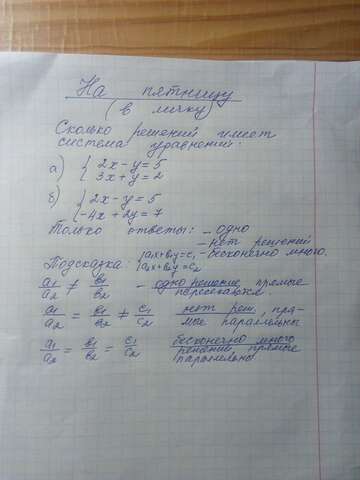 На пятницу
(в личку)
Сколько решений имеет
система уравнений:
а) { 2x - y = 5
3x + y = 2
б) { 2x - y = 5
-4x + 2y = 7
Только ответы: - одно
- нет решений
- бесконечно много.
Подсказка: { a₁x + b₁y = c₁
a₂x + b₂y = c₂
a₁/a₂ ≠ b₁/b₂ - одно решение прямые
пересекаются.
a₁/a₂ = b₁/b₂ ≠ c₁/c₂ нет реш, пря-
мые параллельны
a₁/a₂ = b₁/b₂ = c₁/c₂ бесконечно много
решений прямые
параллельны